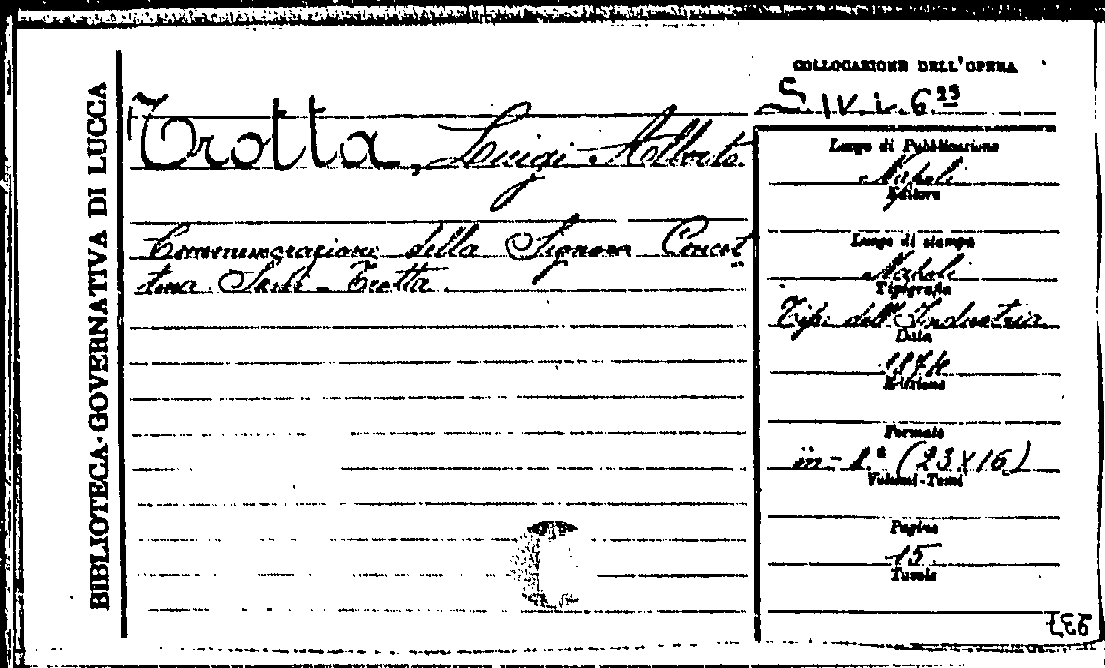 BIBLIOTECA GOVERNATIVA DI LUCCA
COLLOCAZIONE DELL'OPERA
S. IV. L. 6. 23
Trotta, Luigi Alberto
Commemorazione della Signora Concet
tina Trotta
Luogo di Pubblicazione
Napoli
Editore
Luogo di stampa
Napoli
Tipografia
Tip. dell'Industria
Data
Edizione
Formato
in-8.° (23x16)
Volumi-Tomi
Pagine
15
Tavole
937